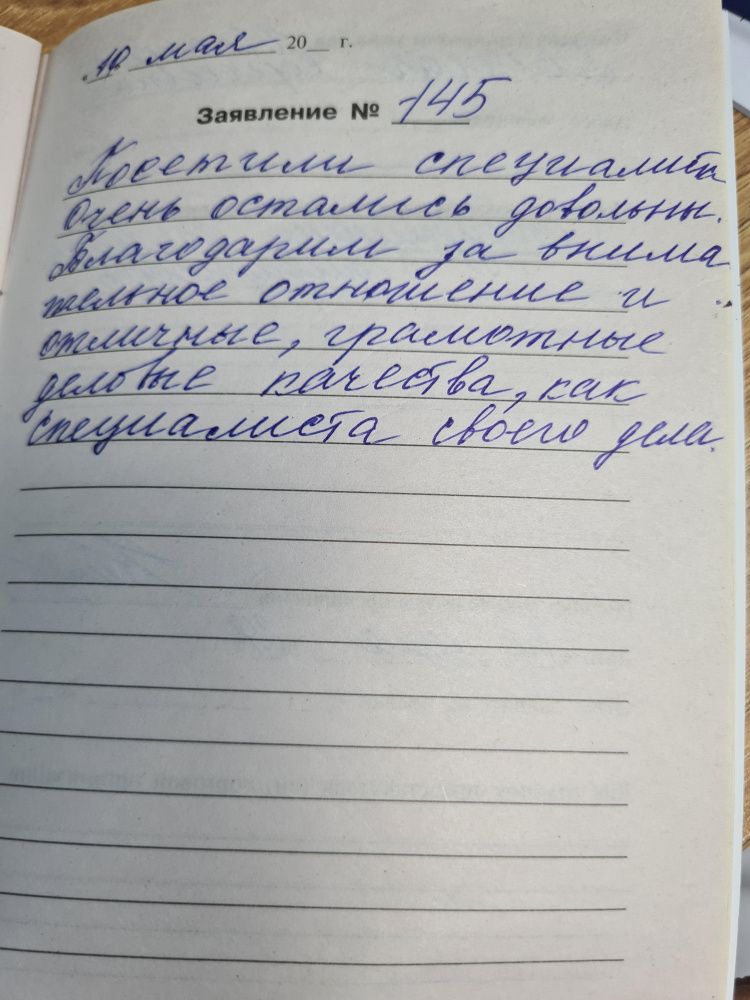 „10" мая 20__ г.
Заявление № 145
Посетили специалиста
очень остались довольны.
Благодарим за внима
тельное отношение и
отличные, грамотные
деловые качества, как
специалиста своего дела.